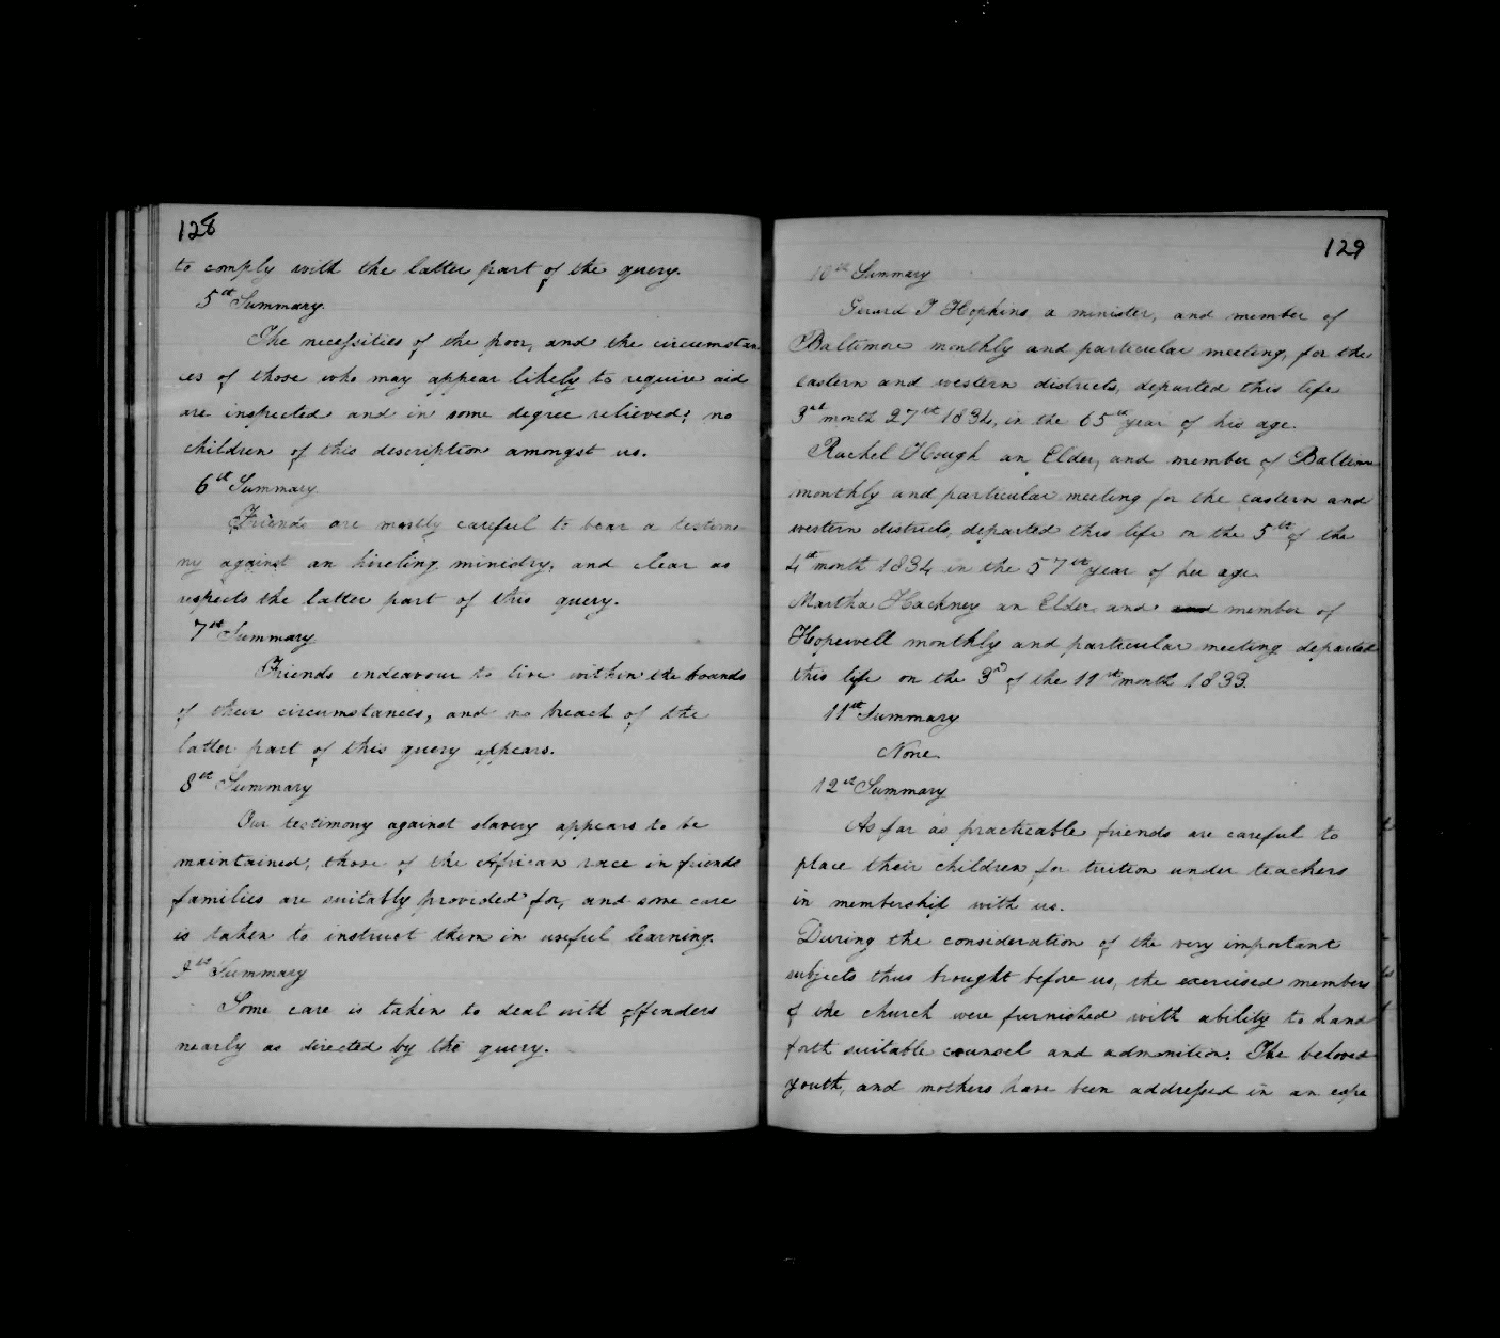 128
to comply with the latter part of the query.
5th Summary.
The necessities of the poor, and the circumstan
ces of those who may appear likely to require aid
are inspected and in some degree relieved; no
children of this description amongst us.
6th Summary
Friends are mostly careful to bear a testimo
ny against an hireling ministry, and clear as
respects the latter part of this query.
7th Summary
Friends endeavour to live within the bounds
of their circumstances, and no breach of the
latter part of this query appears.
8th Summary
Our testimony against slavery appears to be
maintained; those of the African race in friends
families are suitably provided for, and some care
is taken to instruct them in useful learning.
9th Summary
Some care is taken to deal with offenders
nearly as directed by the query.
129
10th Summary
Gerard T Hopkins, a minister, and member of
Baltimore monthly and particular meeting, for the
eastern and western districts, departed this life
3rd month 27th 1834, in the 65th year of his age.
Rachel Hough an Elder, and member of Baltimore
monthly and particular meeting for the eastern and
western districts, departed this life on the 5th of the
4th month 1834 in the 57th year of her age.
Martha Hackney an Elder and and member of
Hopewell monthly and particular meeting departed
this life on the 3rd of the 11th month 1833.
11th Summary
None.
12th Summary
As far as practicable friends are careful to
place their children for tuition under teachers
in membership with us.
During the consideration of the very important
subjects thus brought before us, the exercised members
of the church were furnished with ability to hand
forth suitable counsel and admonition. The beloved
youth, and mothers have been addressed in an espe